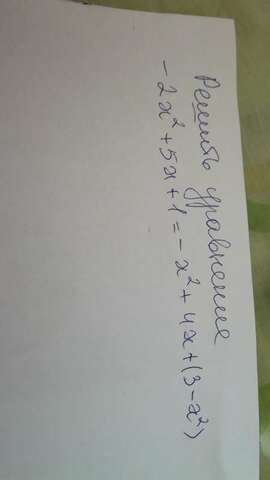 Решить уравнение
-2x² + 5x + 1 = -x² + 4x + (3 - x²)